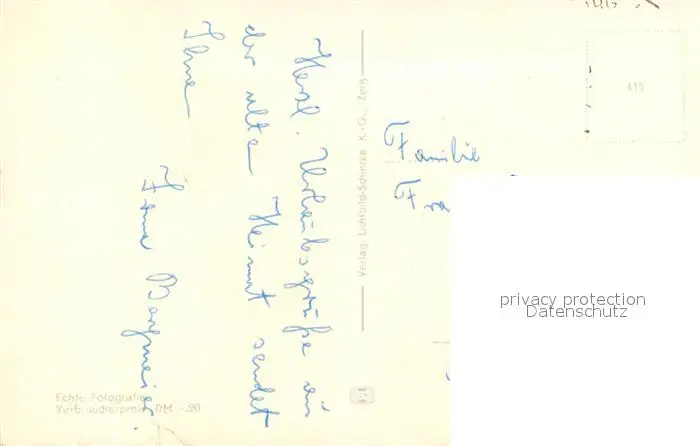 Herzl. Urlaubsgrüße aus
der alten Heimat sendet
Ihnen
Irma
Familie
Verlag: Lichtbild-Schincke K.-G., Zeitz
Echte Fotografie
Verbraucherpreis DM -.20
415
privacy protection
Datenschutz